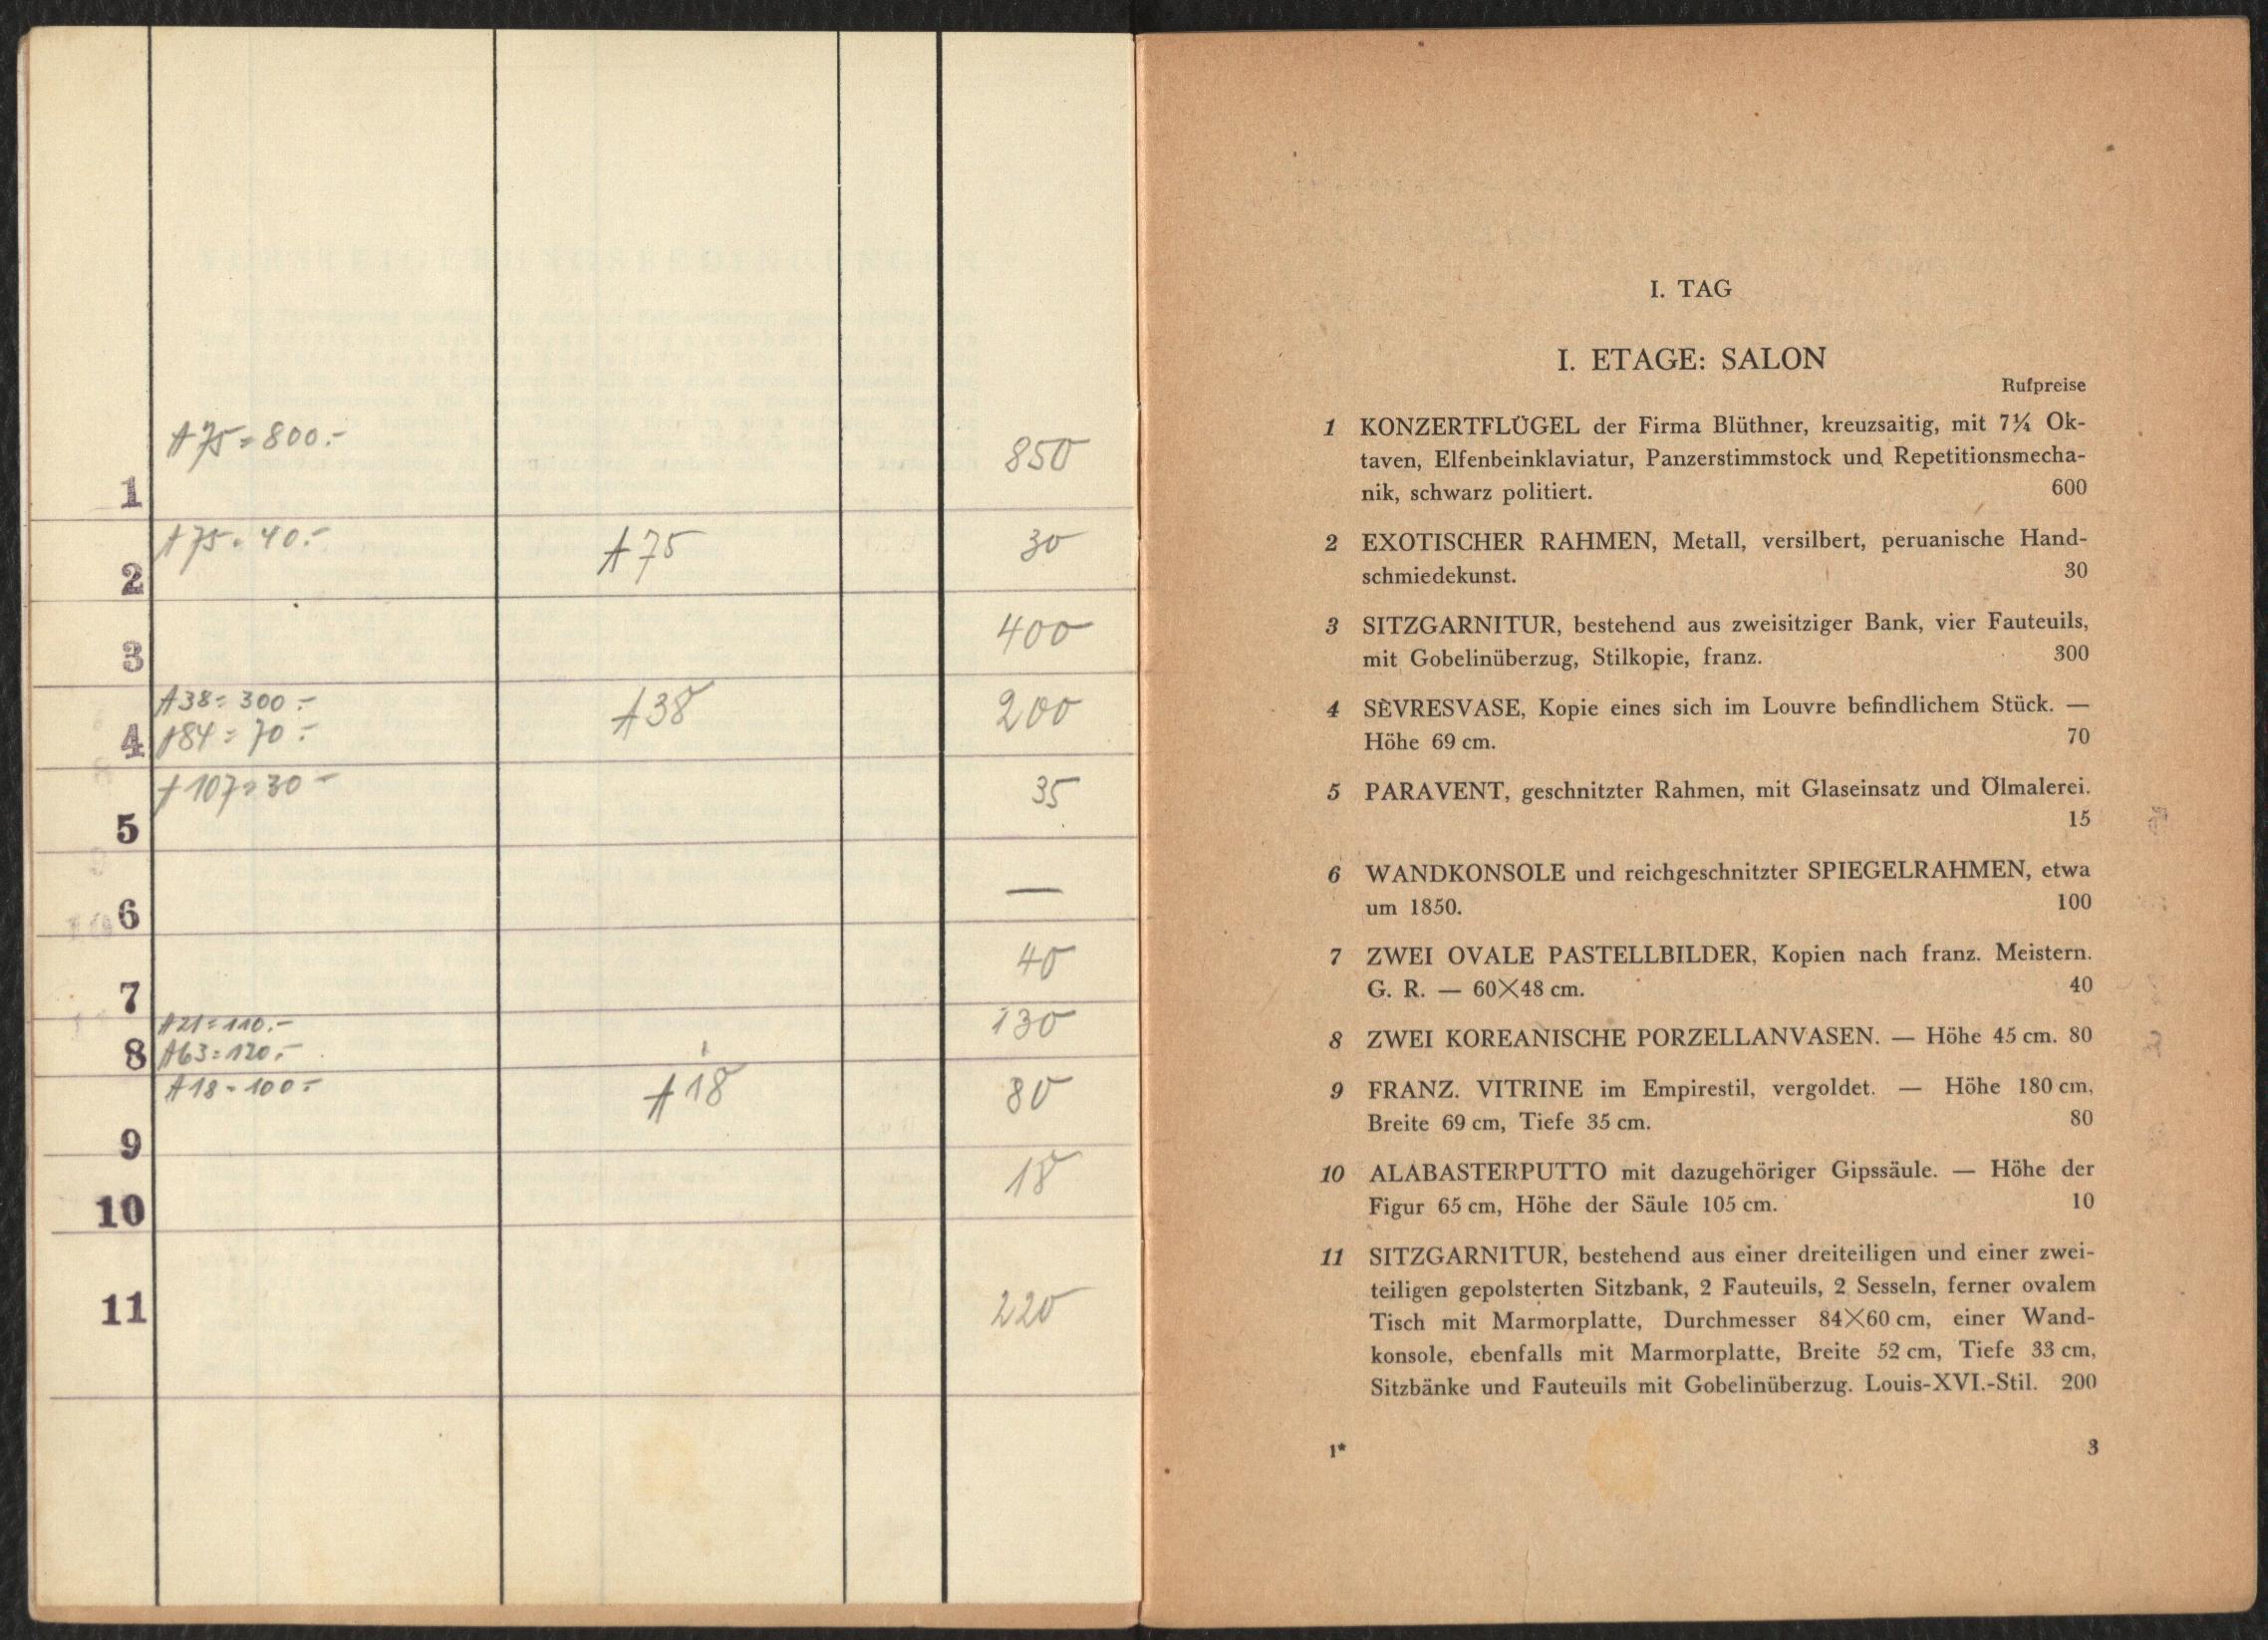 A75=800.-
850
1
A75=40.-
A75
30
2
400
3
A38=300.-
A38
200
4
A84=70.-
A107=30-
35
5
—
6
40
7
A21=110.-
130
8
A63=120.-
A18=100.-
A18
80
9
18
10
220
11
I. TAG
I. ETAGE: SALON
Rufpreise
1 KONZERTFLÜGEL der Firma Blüthner, kreuzsaitig, mit 7¼ Ok-
taven, Elfenbeinklaviatur, Panzerstimmstock und Repetitionsmecha-
nik, schwarz politiert. 600
2 EXOTISCHER RAHMEN, Metall, versilbert, peruanische Hand-
schmiedekunst. 30
3 SITZGARNITUR, bestehend aus zweisitziger Bank, vier Fauteuils,
mit Gobelinüberzug, Stilkopie, franz. 300
4 SÈVRESVASE, Kopie eines sich im Louvre befindlichem Stück. —
Höhe 69 cm. 70
5 PARAVENT, geschnitzter Rahmen, mit Glaseinsatz und Ölmalerei.
15
6 WANDKONSOLE und reichgeschnitzter SPIEGELRAHMEN, etwa
um 1850. 100
7 ZWEI OVALE PASTELLBILDER, Kopien nach franz. Meistern.
G. R. — 60×48 cm. 40
8 ZWEI KOREANISCHE PORZELLANVASEN. — Höhe 45 cm. 80
9 FRANZ. VITRINE im Empirestil, vergoldet. — Höhe 180 cm,
Breite 69 cm, Tiefe 35 cm. 80
10 ALABASTERPUTTO mit dazugehöriger Gipssäule. — Höhe der
Figur 65 cm, Höhe der Säule 105 cm. 10
11 SITZGARNITUR, bestehend aus einer dreiteiligen und einer zwei-
teiligen gepolsterten Sitzbank, 2 Fauteuils, 2 Sesseln, ferner ovalem
Tisch mit Marmorplatte, Durchmesser 84×60 cm, einer Wand-
konsole, ebenfalls mit Marmorplatte, Breite 52 cm, Tiefe 33 cm,
Sitzbänke und Fauteuils mit Gobelinüberzug. Louis-XVI.-Stil. 200
1* 3